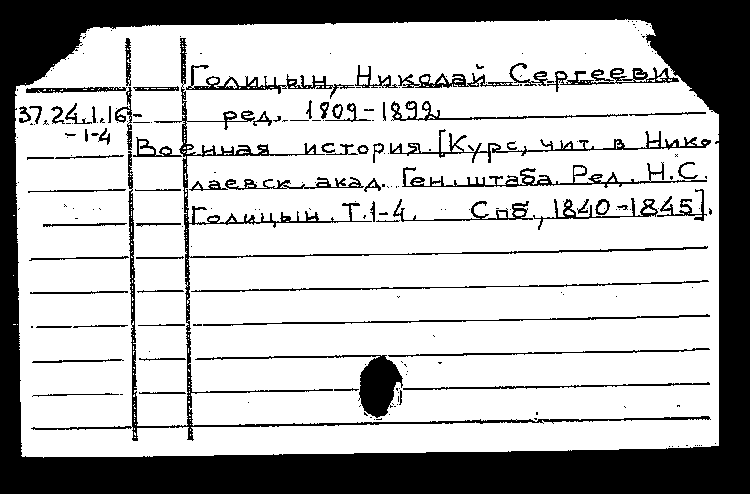 Голицын, Николай Сергееви
37.24.1.16- ред. 1809-1892
-1-4
Военная история. [Курс, чит. в Нико-
лаевск. акад. Ген. штаба. Ред. Н.С.
Голицын. Т.1-4. Спб., 1840-1845].